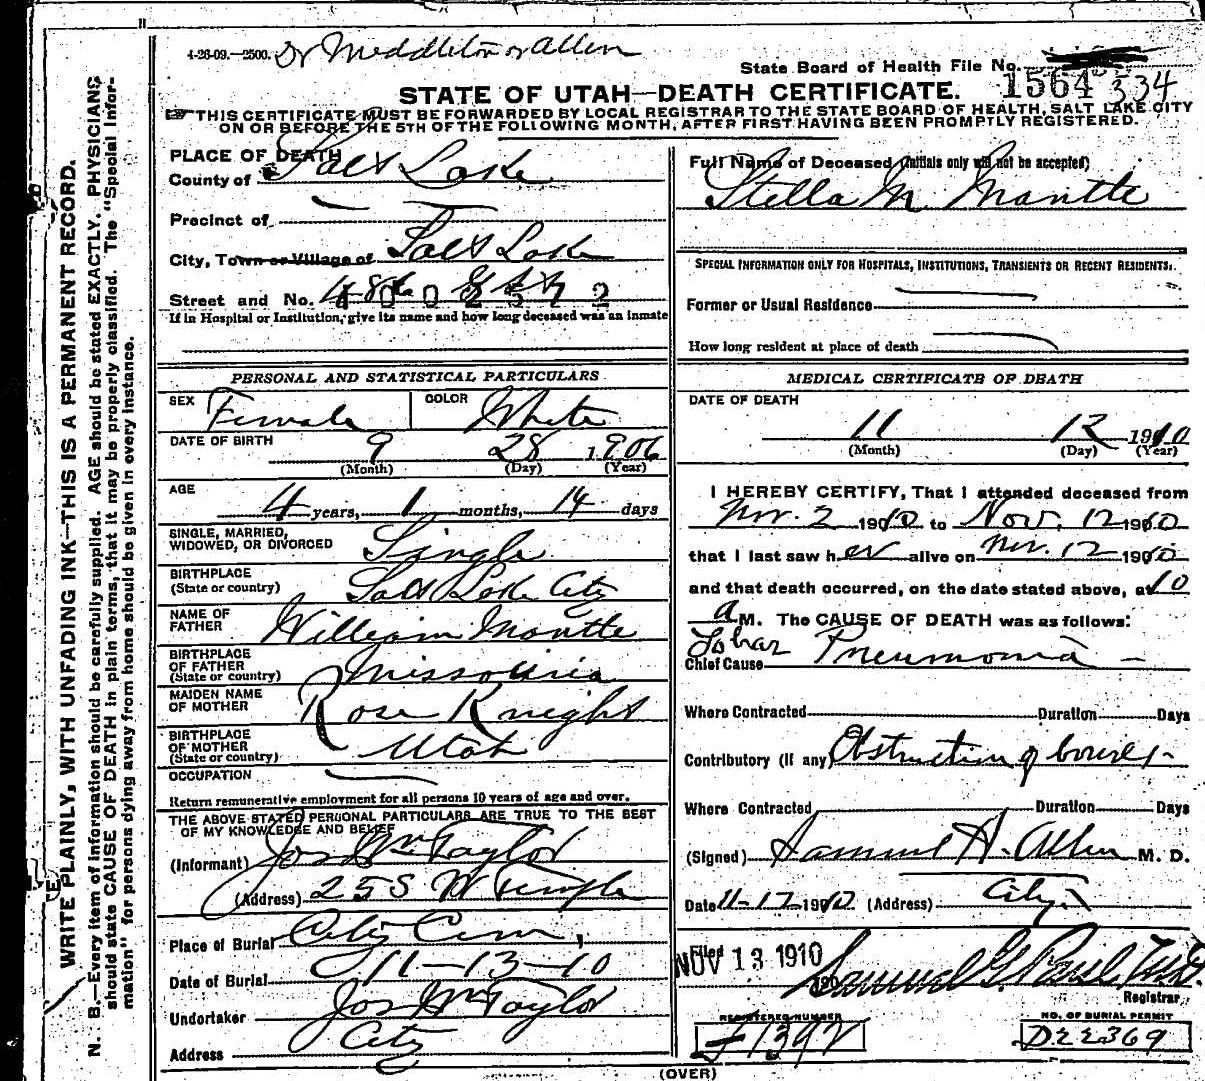 4-26-09.—2500. Dr Meddleton or Allen
State Board of Health File No.
1564 334
STATE OF UTAH—DEATH CERTIFICATE.
THIS CERTIFICATE MUST BE FORWARDED BY LOCAL REGISTRAR TO THE STATE BOARD OF HEALTH, SALT LAKE CITY
ON OR BEFORE THE 5TH OF THE FOLLOWING MONTH, AFTER FIRST HAVING BEEN PROMPTLY REGISTERED.
WRITE PLAINLY, WITH UNFADING INK—THIS IS A PERMANENT RECORD.
N. B.—Every item of information should be carefully supplied. AGE should be stated EXACTLY. PHYSICIANS
should state CAUSE OF DEATH in plain terms, that it may be properly classified. The "Special Infor-
mation" for persons dying away from home should be given in every instance.
PLACE OF DEATH
County of Salt Lake
Precinct of
City, Town or Village of Salt Lake
Street and No.
If in Hospital or Institution, give its name and how long deceased was an inmate
PERSONAL AND STATISTICAL PARTICULARS
SEX Female COLOR White
DATE OF BIRTH 9 28 1906
(Month) (Day) (Year)
AGE
4 years, 1 months, 14 days
SINGLE, MARRIED,
WIDOWED, OR DIVORCED Single
BIRTHPLACE
(State or country) Salt Lake City
NAME OF
FATHER William Mantle
BIRTHPLACE
OF FATHER
(State or country) Missouria
MAIDEN NAME
OF MOTHER Rose Knight
BIRTHPLACE
OF MOTHER
(State or country) Utah
OCCUPATION
Return remunerative employment for all persons 10 years of age and over.
THE ABOVE STATED PERSONAL PARTICULARS ARE TRUE TO THE BEST
OF MY KNOWLEDGE AND BELIEF
(Informant) Jos Wm Taylor
(Address) 25 S W Temple
Place of Burial City Cem,
Date of Burial 11-13-10
Undertaker Jos Wm Taylor
Address City
Full Name of Deceased (initials only will not be accepted)
Stella M Mantle
SPECIAL INFORMATION ONLY FOR HOSPITALS, INSTITUTIONS, TRANSIENTS OR RECENT RESIDENTS.
Former or Usual Residence
How long resident at place of death
MEDICAL CERTIFICATE OF DEATH
DATE OF DEATH
11 12 1910
(Month) (Day) (Year)
I HEREBY CERTIFY, That I attended deceased from
Nov. 2 1910 to Nov. 12 1910
that I last saw her alive on Nov. 12 1910
and that death occurred, on the date stated above, at 10
a M. The CAUSE OF DEATH was as follows:
Chief Cause Lobar Pneumonia
Where Contracted Duration Days
Contributory (if any) Obstruction of bowels
Where Contracted Duration Days
(Signed) Samuel H. Allen M. D.
Date 11-12-1910 (Address) City
Filed
NOV 13 1910 Samuel G. Paul, M.D.
Registrar
REGISTERED NUMBER
NO. OF BURIAL PERMIT
F1392
D22369
(OVER)